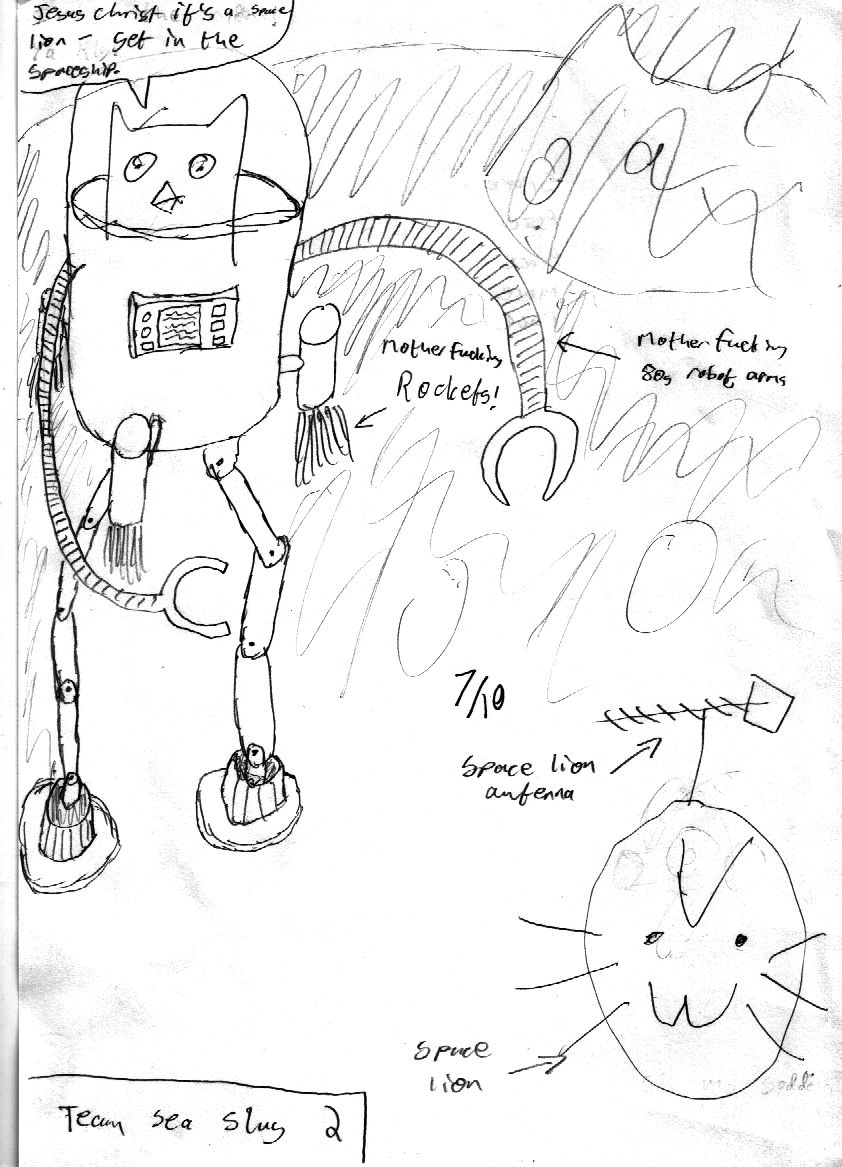 Jesus christ it's a space
lion - get in the
spaceship.
Motherfucking
Rockets!
Motherfucking
80s robot arms
7/10
Space lion
antenna
Space
lion
Team sea slug 2